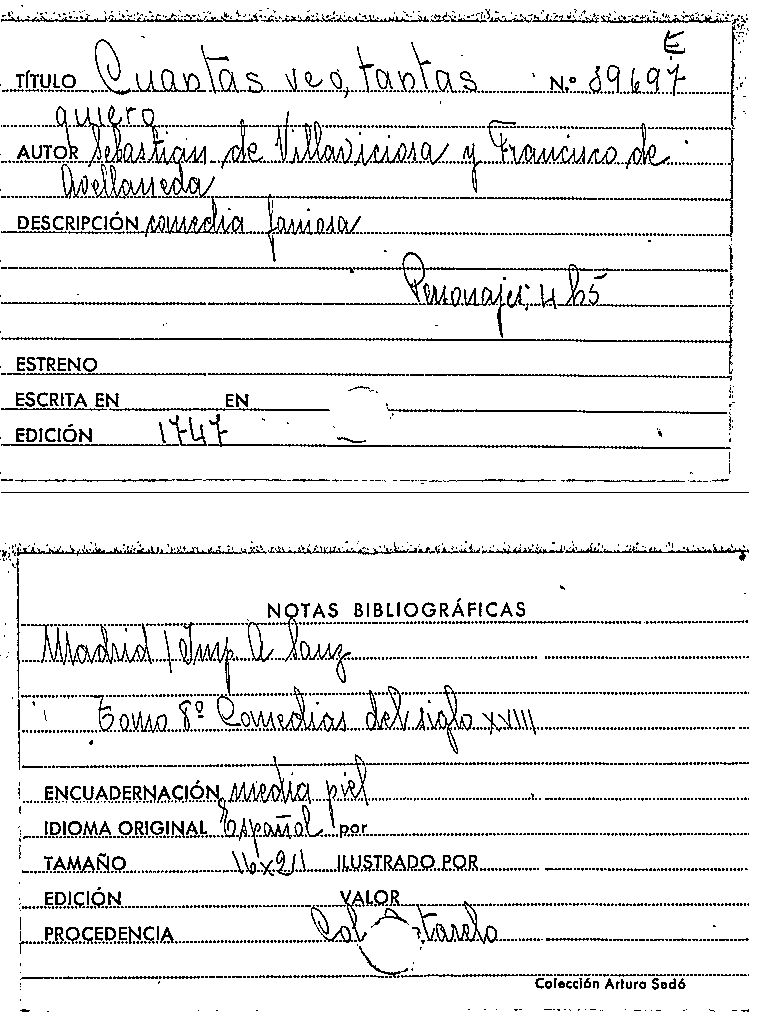 E
TÍTULO Cuantas veo, tantas N.º 89697
quiero
AUTOR Sebastian de Villaviciosa y Francisco de
Avellaneda
DESCRIPCIÓN comedia famosa
Personajes: 4 h 5
ESTRENO
ESCRITA EN EN
EDICIÓN 1747
NOTAS BIBLIOGRÁFICAS
Madrid / Imp A Sanz
Tomo 8º Comedias del siglo XVIII
ENCUADERNACIÓN media piel
IDIOMA ORIGINAL Español por
TAMAÑO 16x21 ILUSTRADO POR
EDICIÓN VALOR
PROCEDENCIA Col tarelo
Colección Arturo Sedó